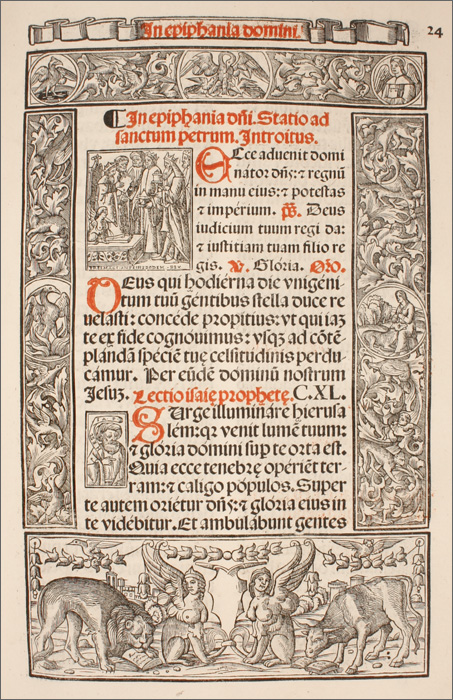 In epiphania domini.
24
¶ In epiphania dñi. Statio ad
sanctum petrum. Introitus.
Ecce aduenit domi
natoꝛ dñs: ⁊ regnũ
in manu eius: ⁊ potestas
⁊ imperium. p̃s. Deus
iudicium tuum regi da:
⁊ iustitiam tuam filio re
gis. ℣. Glória. Oꝛo.
DEus qui hodiérna die vnigéni
tum tuũ géntibus stella duce re
uelasti: concéde propitius: vt qui iaz
te ex fide cognouimus: vsqꝫ ad cõtẽ
plándã spéciẽ tuę celsitudinis perdu
cámur. Per eũdẽ dominũ nostrum
Jesuz. Lectio isaie prophetę. C. XL.
SUrge illumináre hierusa
lém: qꝛ venit lumẽ tuum:
⁊ glória domini sup̱ te orta est.
Quia ecce tenebrę opériẽt ter-
ram: ⁊ caligo pópulos. Super
te autem oriétur dñs: ⁊ glória eius in
te vidébitur. Et ambulabunt gentes